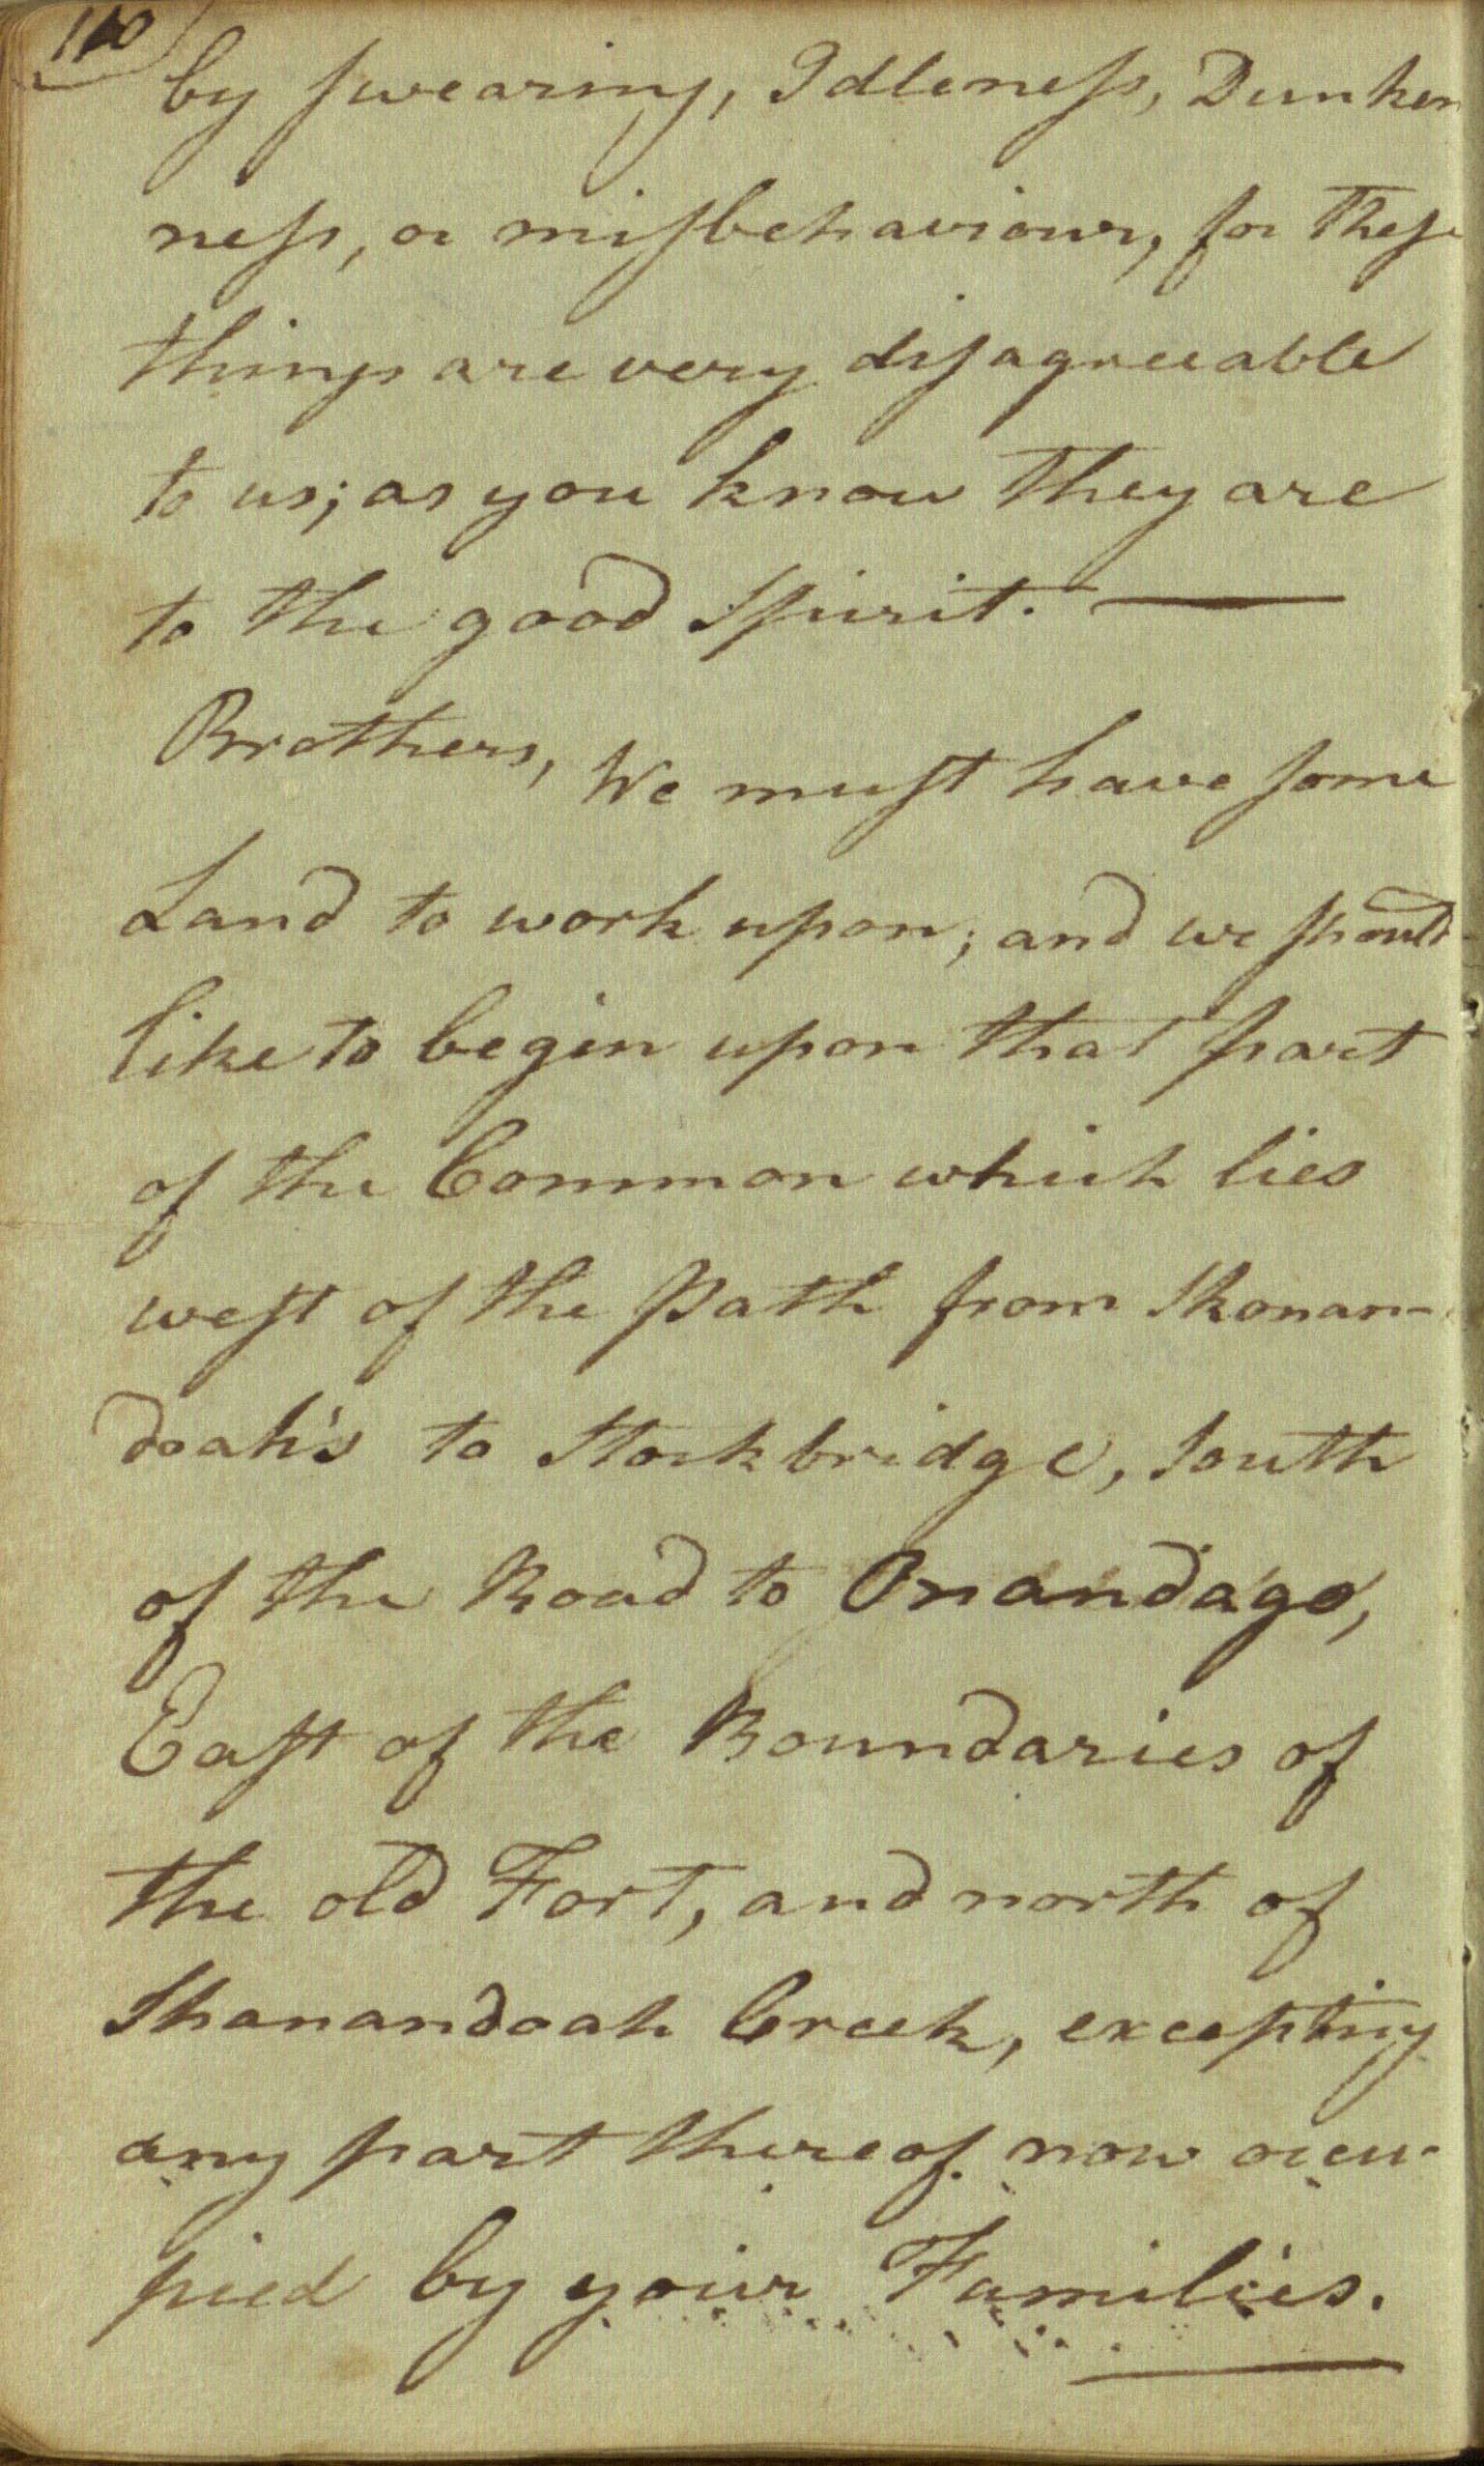 110
by swearing, Idleness, Dunken
ness, or misbehaviour, for these
things are very disagreeable
to us; as you know they are
to the good Spirit. —
Brothers, We must have some
Land to work upon; and we should
like to begin upon that part
of the Common which lies
west of the Path from Skonan-
doah's to Stockbridge, South
of the Road to Onandago,
East of the Boundaries of
the old Fort, and north of
Skanandoah Creek, excepting
any part thereof now occu-
pied by your Families.